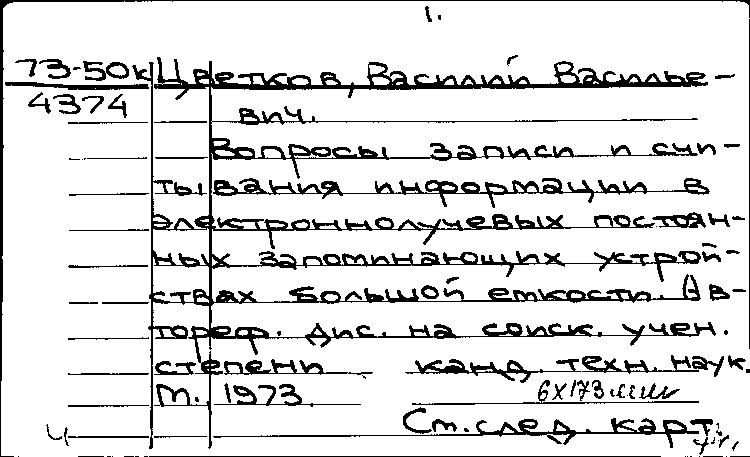 1.
73-50к Цветков, Василий Василье-
4374 вич.
Вопросы записи и счи-
тывания информации в
электроннолучевых постоян-
ных запоминающих устрой-
ствах большой емкости. Ав-
тореф. дис. на соиск. учен.
степени канд. техн. наук.
М., 1973.
См. след. карт.